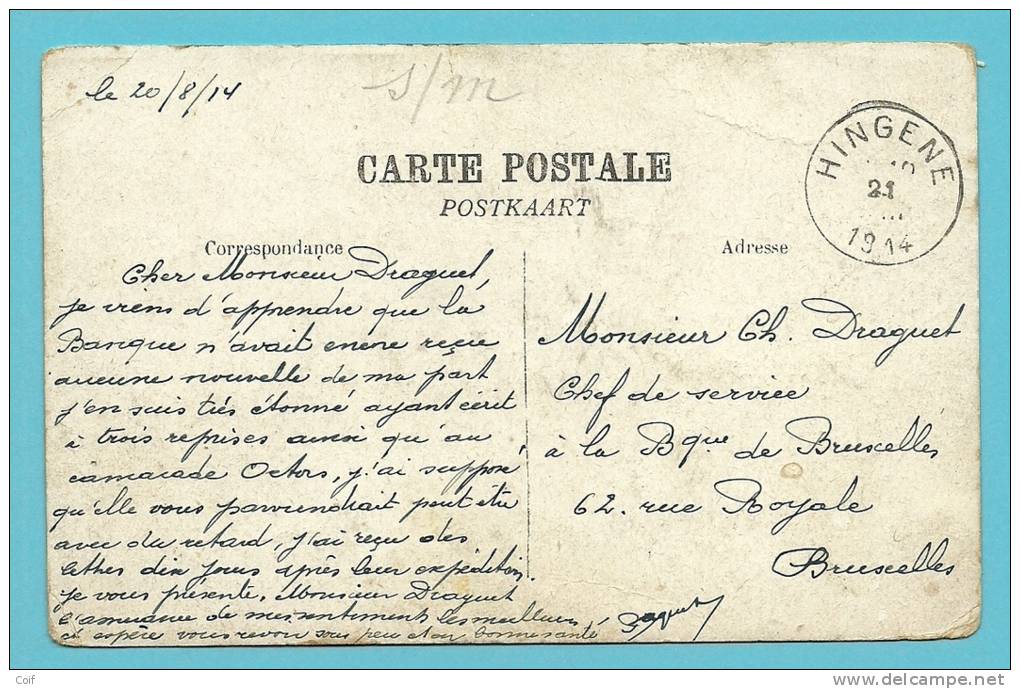 le 20/8/14
S/M
CARTE POSTALE
POSTKAART
HINGENE
21
1914
Correspondance
Adresse
Cher Monsieur Draguet,
je viens d'apprendre que la
Banque n'avait encore reçue
aucune nouvelle de ma part
j'en suis très étonné ayant écrit
à trois reprises ainsi qu'au
camarade Octors, j'ai supposé
qu'elle vous parviendrait peut être
avec du retard, j'ai reçu des
lettres dix jours après leur expédition.
je vous présente, Monsieur Draguet
l'assurance de mes sentiments les meilleurs
et espère vous revoir sous peu et en bonne santé
Monsieur Ch. Draguet
Chef de service
à la Bque de Bruxelles
62. rue Royale
Bruxelles
Coif
www.delcampe.net